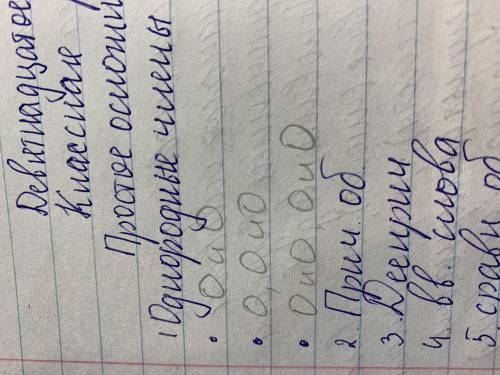 Девятнадцатое
Классная
Простое осложн
1 Однородные члены
• О и О
• О, О и О
• О и О, О и О
2. Прич. об
3. Дееприч
4. вв. слова
5. сравн об